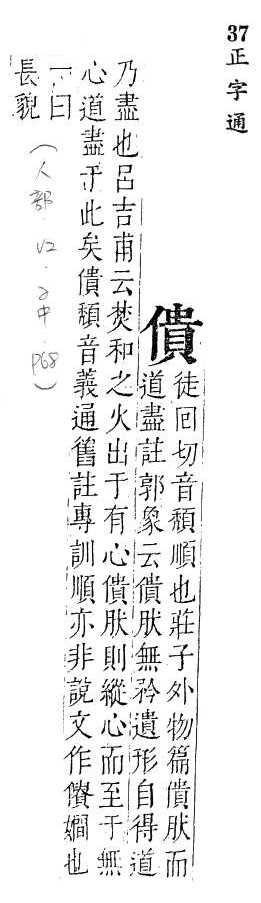 37正字通
僓
徒回切音頽順也莊子外物篇僓肰而
道盡註郭象云僓肰無矜遺形自得道
乃盡也呂吉甫云焚和之火出于有心僓肰則縱心而至于無
心道盡于此矣僓頽音義通舊註專訓順亦非說文作嫺也
一曰
長貌
(人部.12.子中.P68)